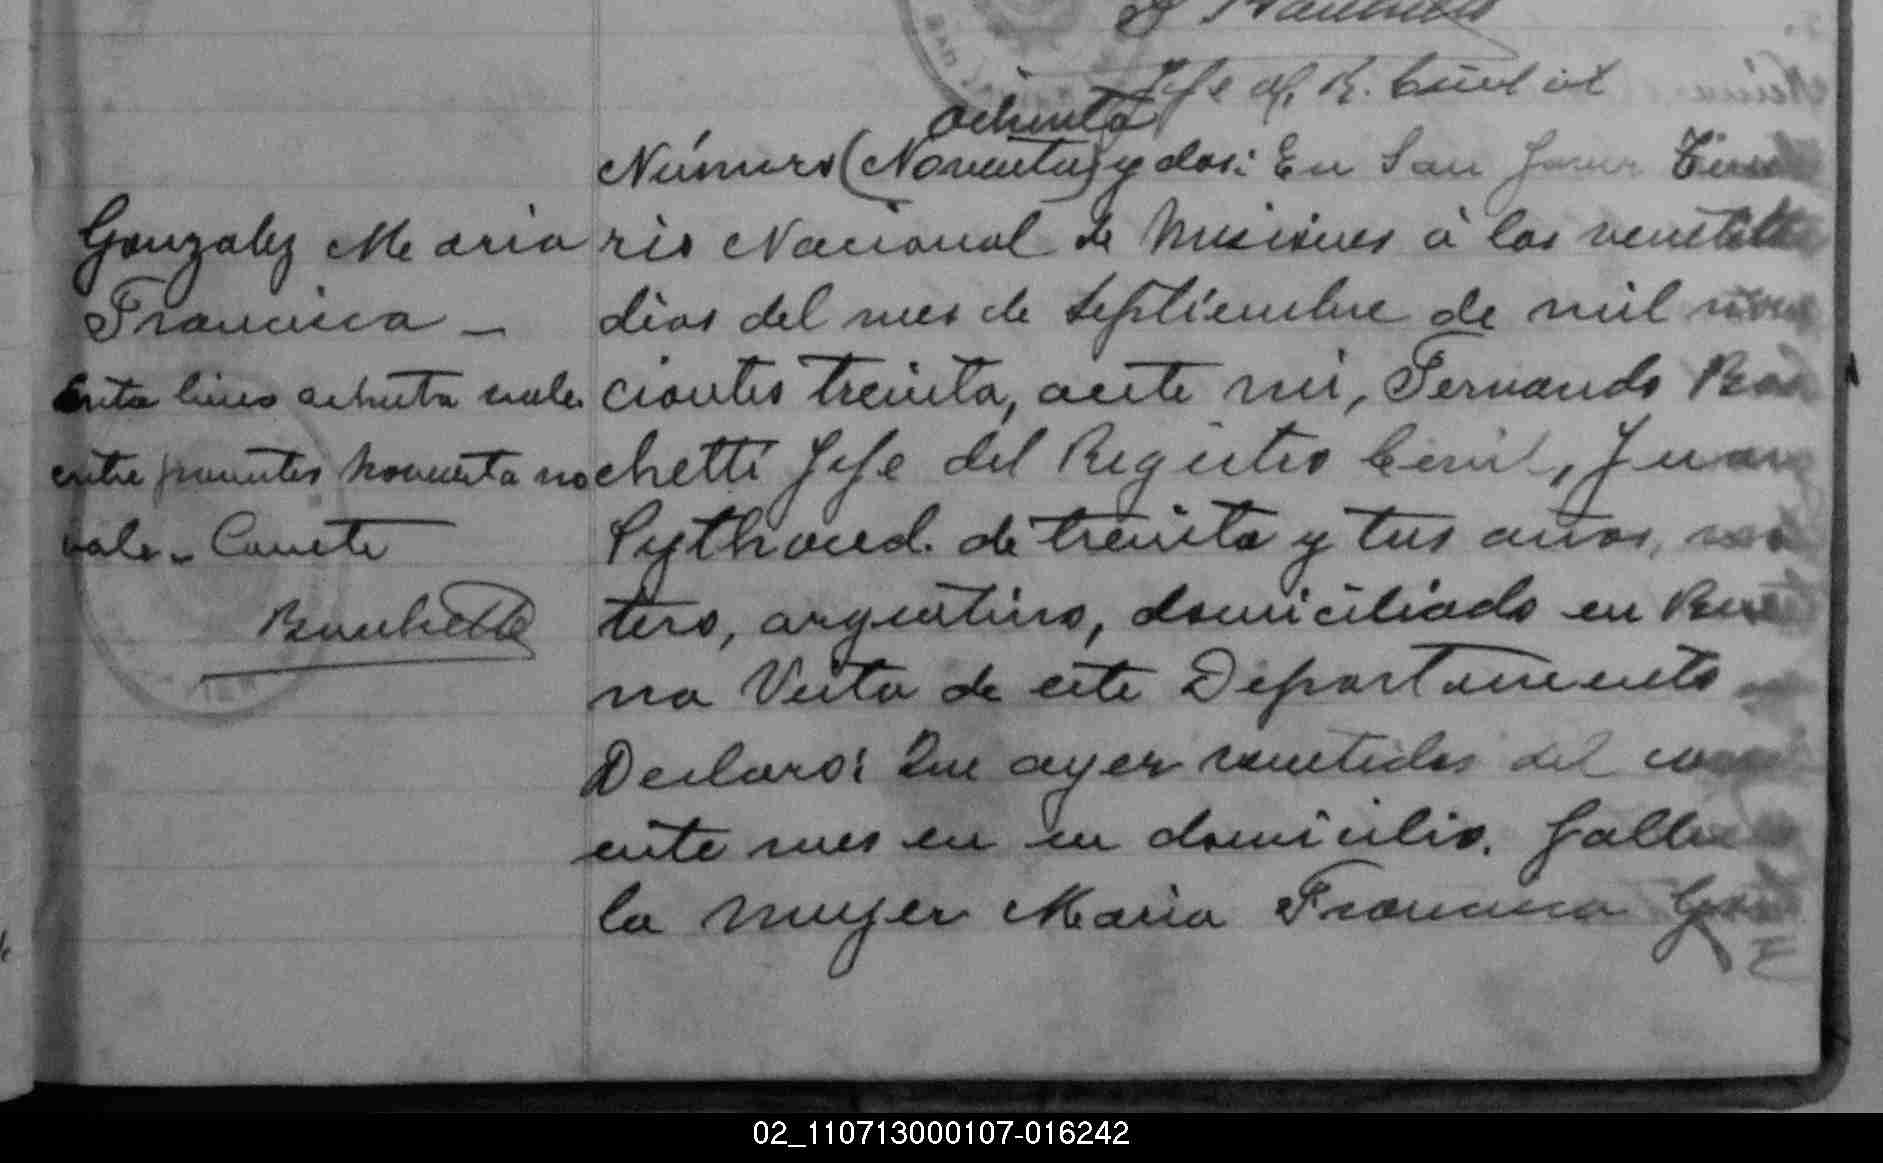 Jefe d. R. Civil
ochenta
Número (Noventa) y dos: En San Javier Territo
rio Nacional de Misiones à los
dias del mes de Septiembre de mil nove
cientos treinta, ante mi, Fernando Ban
chetti Jefe del Registro Civil, Juan
Pythoud. de treinta y tres años, sol
tero, argentino, domiciliado en Bue
na Vista de este Departamento
Declaro: Que ayer del corri
ente mes en su domicilio. Falle
la mujer Maria Francisca Gonz
Gonzalez Maria
Francisca -
Entre lineo ochenta vale.
entre parentes noventa no
vale - Conste
Banchetti
02_110713000107-016242